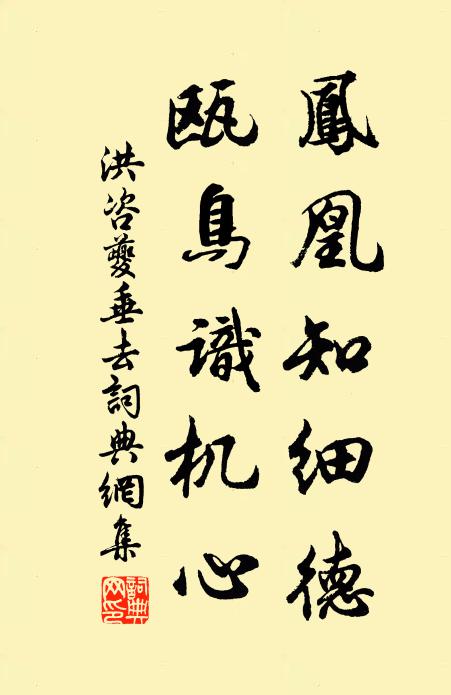 鳳凰知細德
瓯鳥識机心
洪咨夔垂去詞典網集
詞典网印